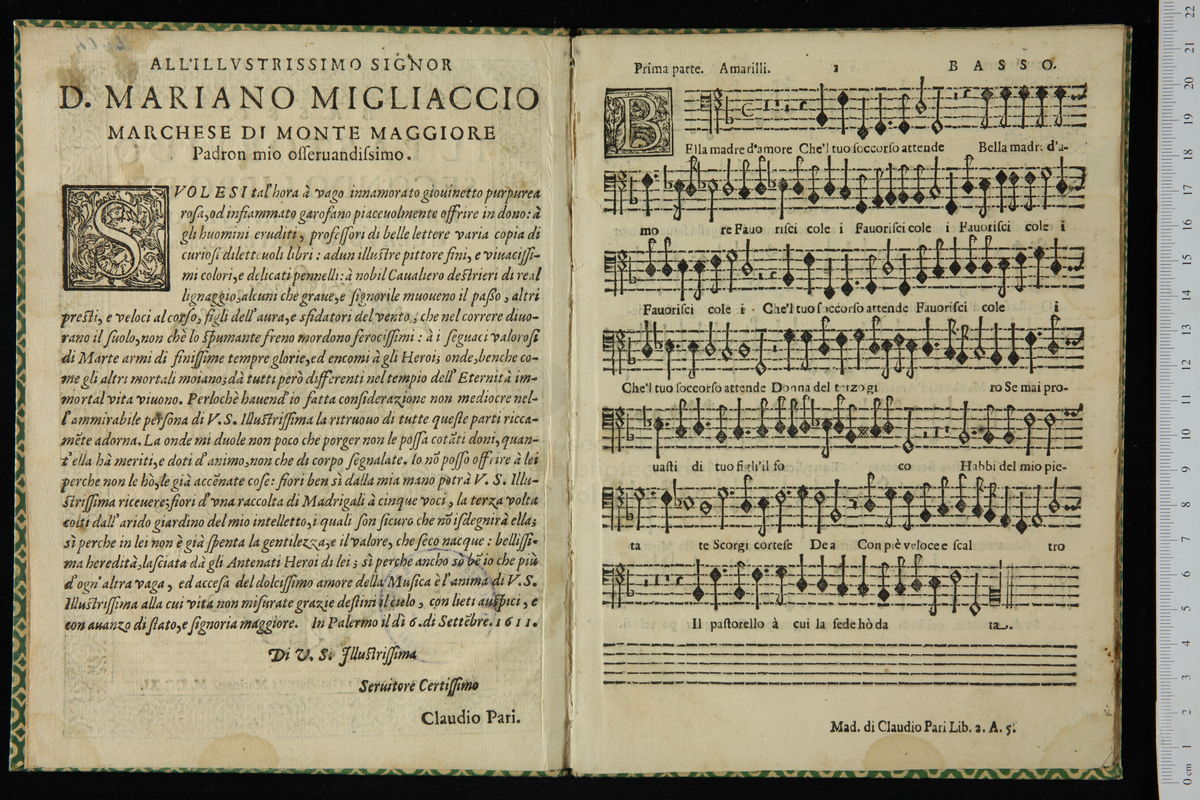 ALL'ILLVSTRISSIMO SIGNOR
D. MARIANO MIGLIACCIO
MARCHESE DI MONTE MAGGIORE
Padron mio osseruandissimo.
SVOLESI tal'hora à vago innamorato giouinetto purpurea
rosa, od infiammato garofano piaceuolmente offrire in dono: à
gli huomini eruditi, professori di belle lettere varia copia di
curiosi diletteuoli libri: ad un illustre pittore fini, e viuacissi-
mi colori, e delicati pennelli: à nobil Caualiero destrieri di real
lignaggio, alcuni che graue, e signorile muoueno il passo, altri
presti, e veloci al corso, figli dell'aura, e sfidatori del vento, che nel correre diuo-
rano il suolo, non chè lo spumante freno mordono ferocissimi: à i seguaci valorosi
di Marte armi di finissime tempre glorie, ed encomi à gli Heroi; onde, benche co-
me gli altri mortali moiano; dà tutti però differenti nel tempio dell'Eternità im-
mortal vita viuono. Perlochè hauend'io fatta considerazione non mediocre nel-
l'ammirabile persona di V. S. Illustrissima la ritruouo di tutte queste parti ricca-
mẽte adorna. La onde mi duole non poco che porger non le possa cotãti doni, quan-
t'ella hà meriti, e doti d'animo, non che di corpo segnalate. Io nõ posso offrire à lei
perche non le hò, le già accẽnate cose: fiori ben sì dalla mia mano potrà V. S. Illu-
strissima riceuere; fiori d'vna raccolta di Madrigali à cinque voci, la terza volta
colti dall'arido giardino del mio intelletto, i quali son sicuro che nõ isdegnirà ella;
sì perche in lei non è già spenta la gentilezza, e il valore, che seco nacque: bellissi-
ma heredità, lasciata dà gli Antenati Heroi di lei; sì perche ancho sò bẽ io che più
d'ogn'altra vaga, ed accesa del dolcissimo amore della Musica è l'anima di V. S.
Illustrissima alla cui vita non misurate grazie destini il cielo, con lieti auspici, e
con auanzo di stato, e signoria maggiore. In Palermo il dì 6. di Settẽbre. 1611.
Di V. S. Illustrissima
Seruitore Certissimo
Claudio Pari.
Prima parte. Amarilli. 1 BASSO.
BElla madre d'amore Che'l tuo soccorso attende Bella madre d'a-
mo re Fauo risci cole i Fauorisci cole i Fauorisci cole i
Fauorisci cole i Che'l tuo soccorso attende Fauorisci cole i
Che'l tuo soccorso attende Donna del terzo gi ro Se mai pro-
uasti di tuo figli'il fo co Habbi del mio pie-
ta te Scorgi cortese Dea Con piè veloce e scal tro
Il pastorello à cui la fede hò da ta.
Mad. di Claudio Pari Lib. 2. A. 5.